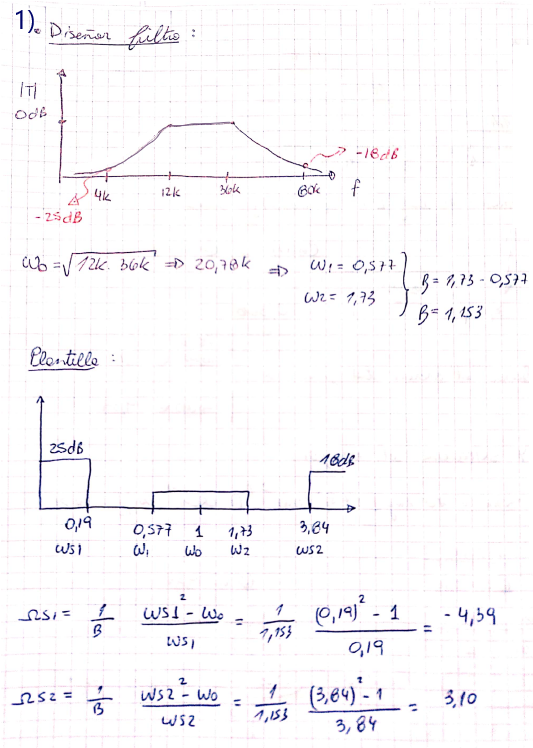 1). Diseñar filtro :
|T|
0dB
-18dB
4k 12k 36k 80k f
-25dB
ω0 = √12k. 36k ⇒ 20,78k ⇒ ω1 = 0,577
ω2 = 1,73
B = 1,73 - 0,577
B = 1,153
Plantilla :
25dB
18dB
0,19 0,577 1 1,73 3,84
ωs1 ω1 ω0 ω2 ωs2
Ωs1 = 1/B (ωs1² - ω0)/ωs1 = 1/1,153 ((0,19)² - 1)/0,19 = -4,39
Ωs2 = 1/B (ωs2² - ω0)/ωs2 = 1/1,153 ((3,84)² - 1)/3,84 = 3,10